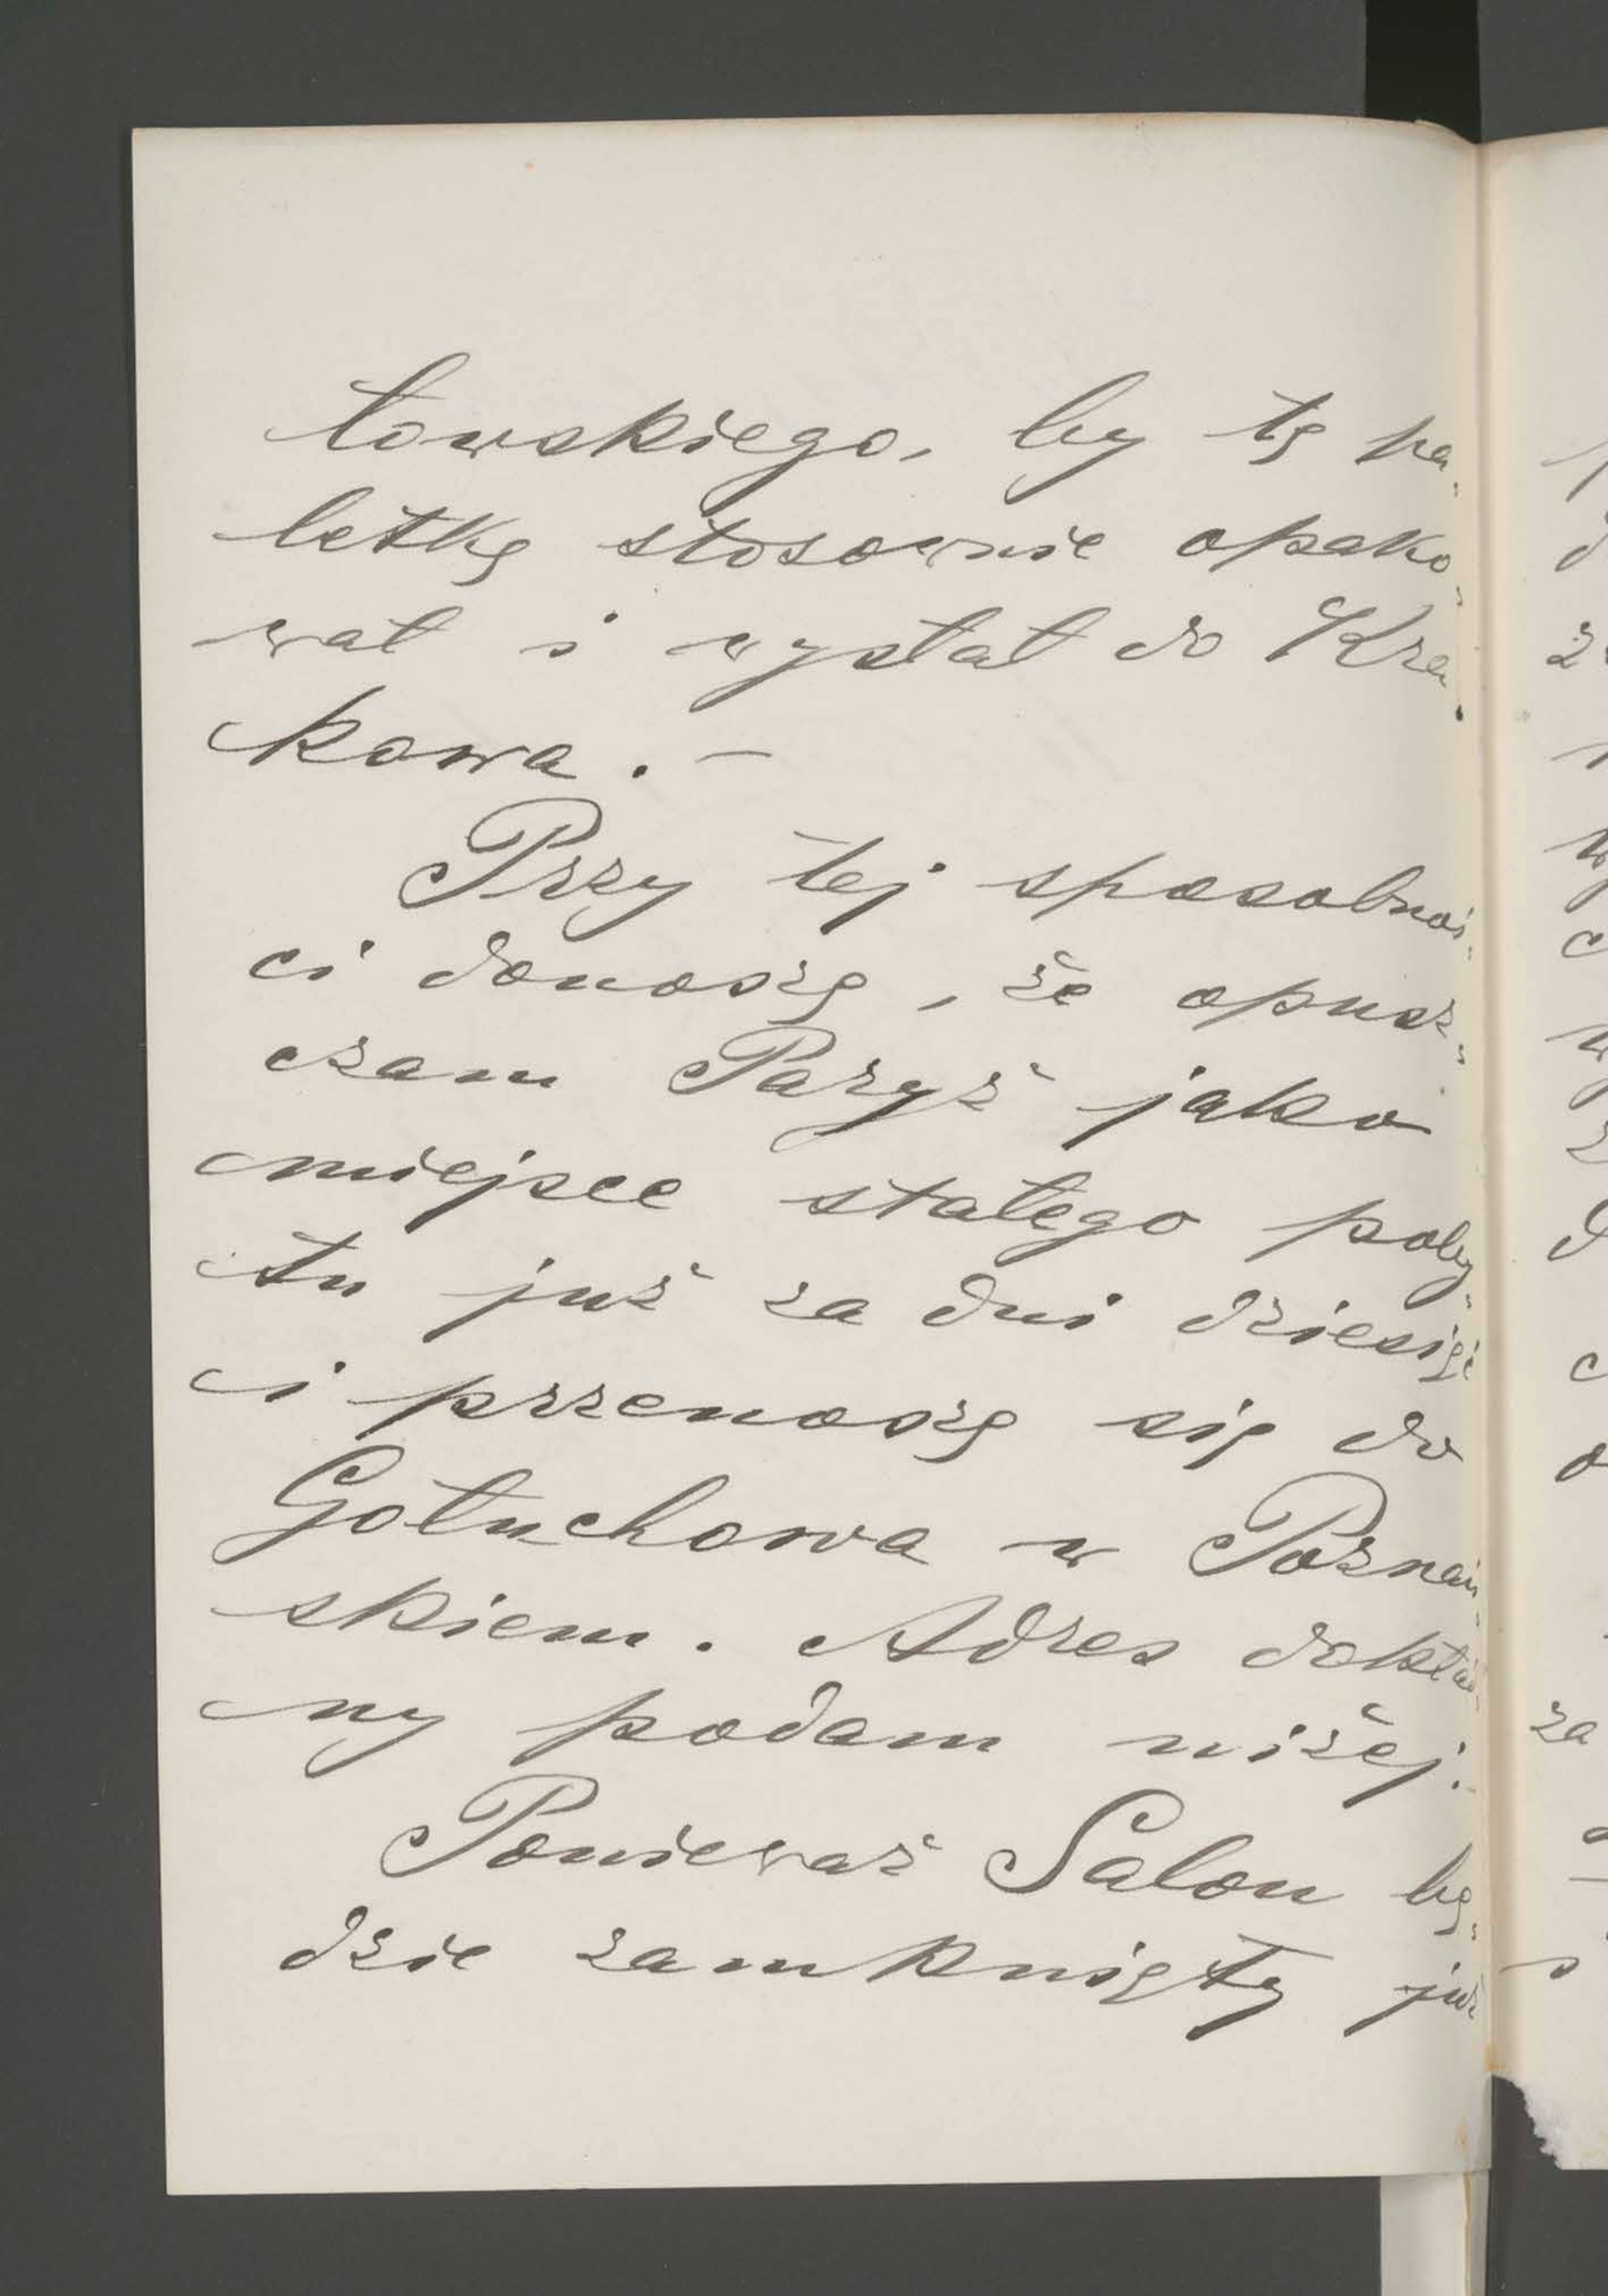 towskiego, by tę pa-
letkę stosownie opako-
wał i wysłał do Kra-
kowa. –
Przy tej sposobnoś-
ci donoszę, że opusz-
czam Paryż jako
miejsce stałego poby-
tu już za dni dziesięć
i przenoszę się do
Gołuchowa w Poznań-
skiem. Adres dokład-
ny podam niżej. -
Ponieważ Salon bę-
dzie zamknięty już